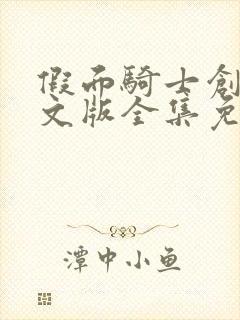 假面騎士創
文版全集免
潭中小鱼